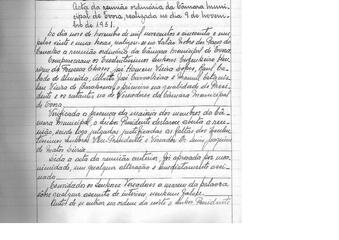 Acta da reunião ordinária da Câmara Muni-
cipal de Evora, realizada no dia 9 de novem-
bro de 1951.
Ao dia nove de novembro de mil novecentos e cincoenta e um,
pelas vinte e uma horas, realizou-se no Salão Nobre dos Paços do
Concelho a reunião ordinária da Câmara Municipal de Evora.
Compareceram os Excelentíssimos Senhores Engenheiro Hen-
rique da Fonseca Chaves, José Vieira Lopes,
de Almeida, Alberto José Carvalheira e Manuel
Vieira de, o primeiro na qualidade de Presi-
dente e os restantes na de Vereadores da Câmara Municipal
de Evora.
Verificada a presença da maioria dos membros da Câ-
mara Municipal, o Senhor Presidente declarou aberta a reu-
nião, sendo logo julgadas justificadas as faltas dos Excelen-
tíssimos Senhores Vice-Presidente e Vereador Dr. Luís Joaquim
de Matos
Lida a acta da reunião anterior, foi aprovada por una-
nimidade, sem qualquer alteração e imediatamente assi-
nada.
Convidados os Senhores Vereadores a usarem da palavra
sobre qualquer assunto de interesse, nenhum falou.
Antes de se entrar na ordem da noite o Senhor Presidente